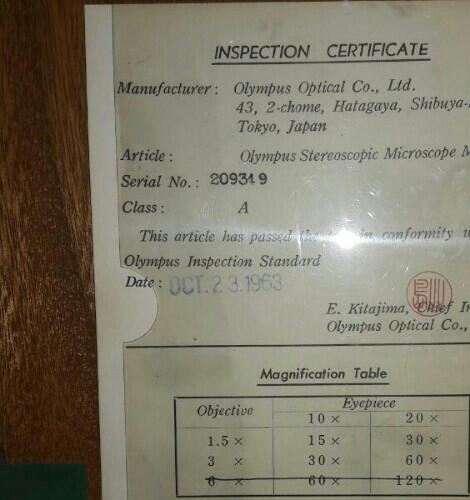 INSPECTION CERTIFICATE
Manufacturer: Olympus Optical Co., Ltd.
43, 2-chome, Hatagaya, Shibuya-
Tokyo, Japan
Article: Olympus Stereoscopic Microscope M
Serial No.: 209349
Class: A
This article has passed in conformity
Olympus Inspection Standard
Date: OCT. 23. 1963
E. Kitajima, Chief In
Olympus Optical Co.,
Magnification Table
Objective Eyepiece
10 × 20 ×
1.5 × 15 × 30 ×
3 × 30 × 60 ×
6 × 60 × 120 ×